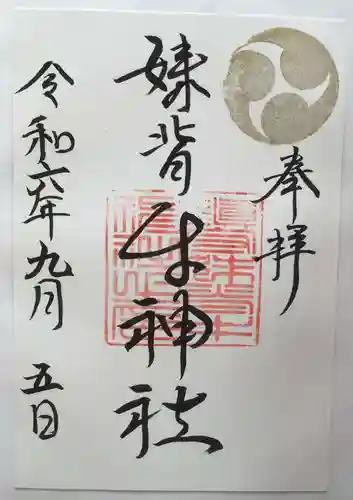 奉拝
妹背牛神社
令和六年九月五日